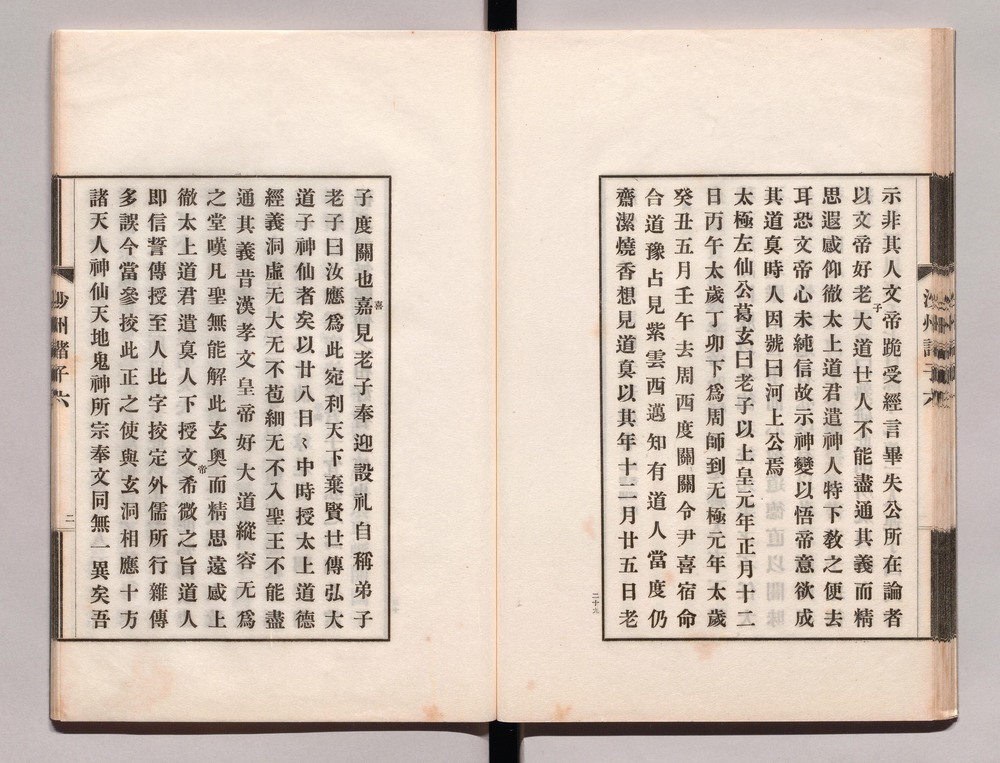 示非其人文帝跪受經言畢失公所在論者
以文帝好老大道廿人不能盡通其義而精
子
思遐感仰徹太上道君遣神人特下教之便去
耳恐文帝心未純信故示神變以悟帝意欲成
其道真時人因號曰河上公焉
太極左仙公葛玄曰老子以上皇元年正月十二
日丙午太歲丁卯下爲周師到无極元年太歲
癸丑五月壬午去周西度關關令尹喜宿命
合道豫占見紫雲西邁知有道人當度仍
齋潔燒香想見道真以其年十二月廿五日老
二十九
子度關也嘉見老子奉迎設礼自稱弟子
喜
老子曰汝應爲此宛利天下棄賢廿傳弘大
道子神仙者矣以廿八日〻中時授太上道德
經義洞虛无大无不苞細无不入聖王不能盡
通其義昔漢孝文皇帝好大道縱容无爲
之堂嘆凡聖無能解此玄奥而精思遠感上
徹太上道君遣真人下授文希微之旨道人
帝
即信誓傳授至人比字挍定外儒所行雜傳
多誤今當參挍此正之使與玄洞相應十方
諸天人神仙天地鬼神所宗奉文同無一異矣吾
州諸子六
二